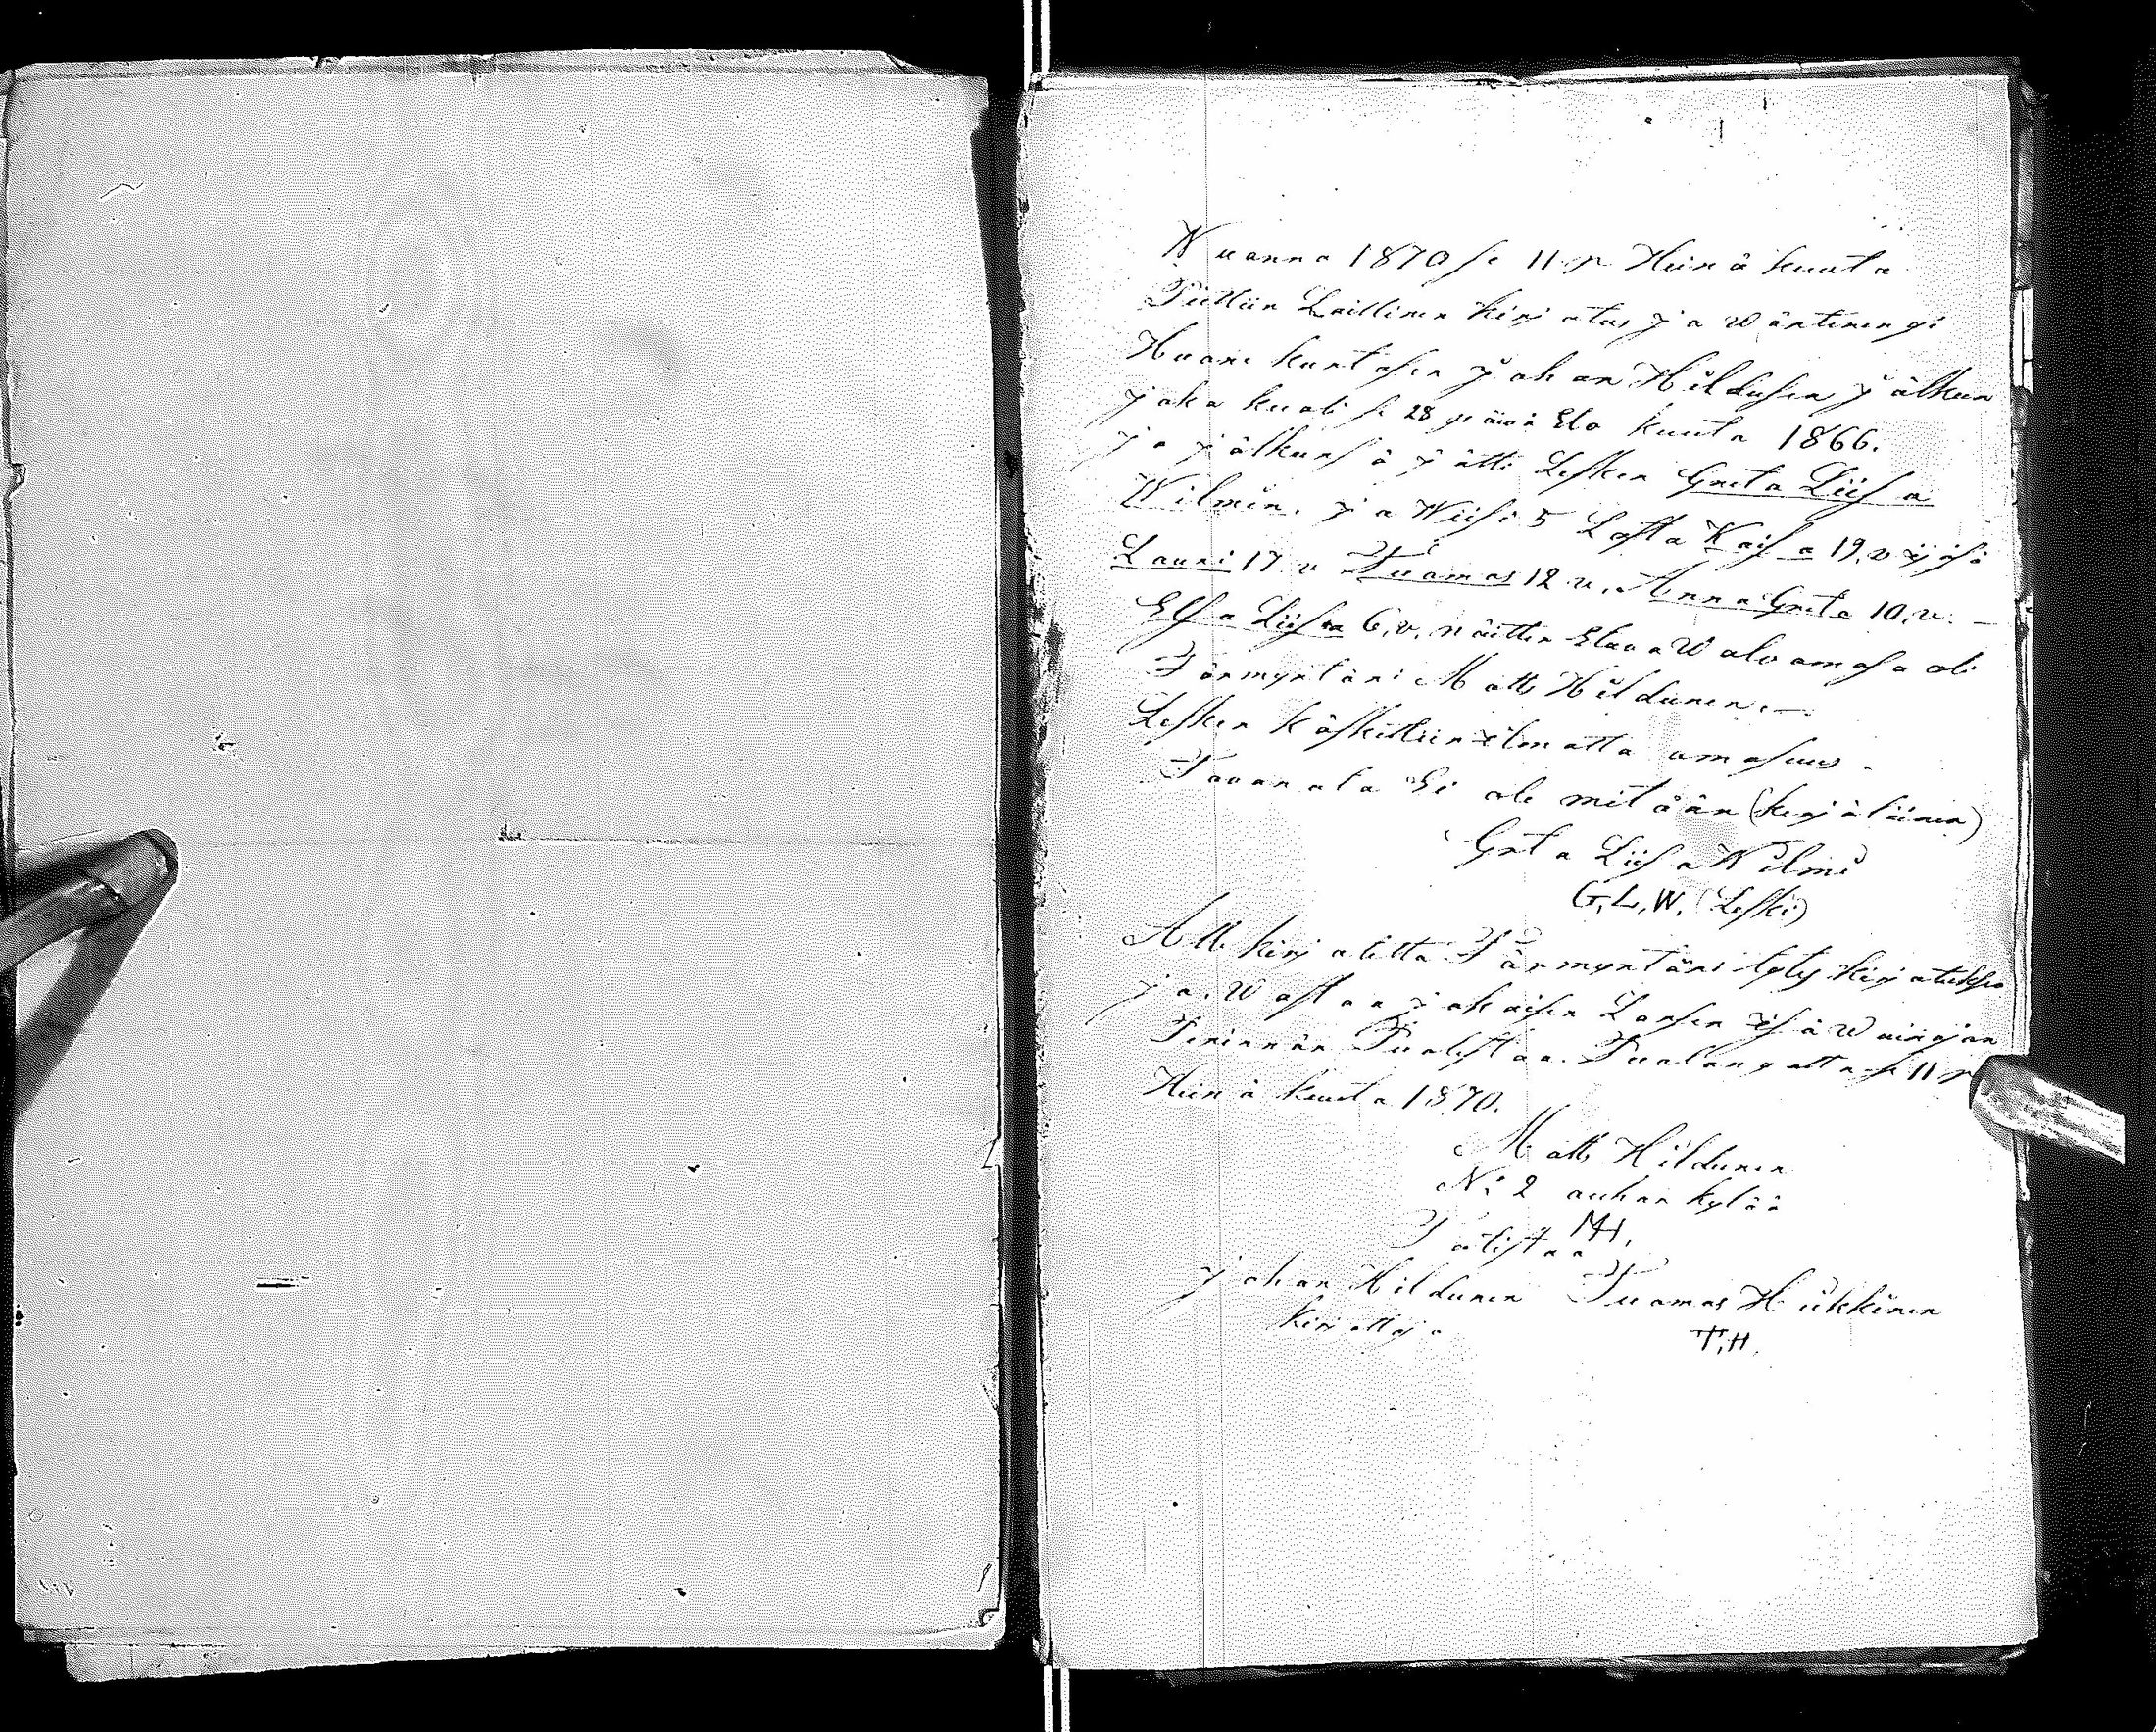 Wuonna 1870 se 11 p Heinä kuuta
Piettiin Laillinen kirjotus ja wärtinengi
Huone kuntasen Johan Hildusen jälkeen
joka kuoli se 28 päiwä Elo kuuta 1866.
ja jälkensä jätti Lesken Greta Liisa
Wilmin. ja Wiisi 5 Lasta Kaisa 19. v
Lauri 17 v Tuomas 12 v. Anna Greta 10. v. —
Elsa Liisa 6. v. näitten Elawa Walwomasa oli
Färmyntäri Matti Hildunen. —
Lesken käskettiin ilmotta omasuus.
Tawarata Ei ole mitään (kerjäläinen)
Greta Liisa Wilmi
G. L. W. (Leski)
Alle kirjotetta Färmyntäri tytyy kirjotukseen
ja. Wastaa jokaisen Lapsen isä Waingan
Perinnän Puolestaa. Puolangalla se 11 p
Heinä kuuta 1870.
Matti Hildunen
N: 2 auhon kylää
MH.
Todistaa
Johan Hildunen Tuomas Heikkinen
Kirjottaja
T. H.